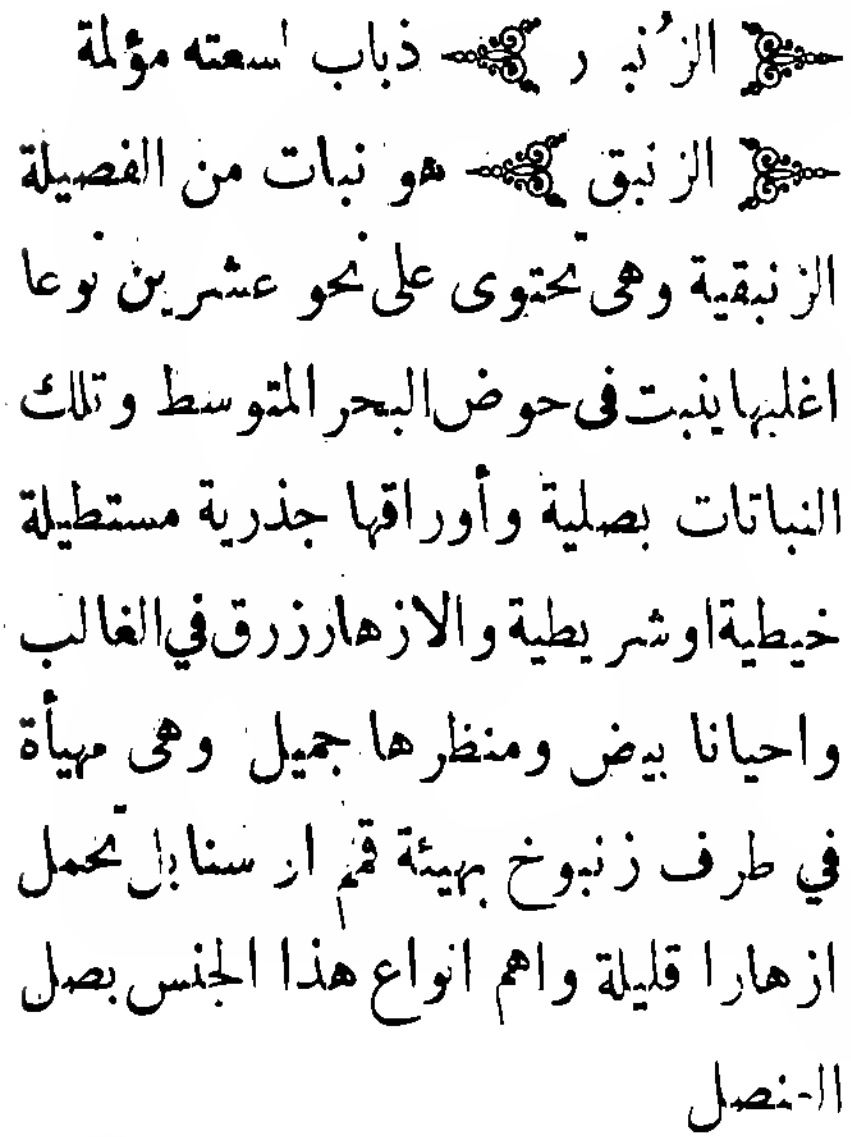 ﴿ الزُنبور ﴾ ذباب لسعته مؤلمة
﴿ الزنبق ﴾ هو نبات من الفصيلة
الزنبقية وهى تحتوى على نحو عشرين نوعا
اغلبها ينبت فى حوض البحر المتوسط وتلك
النباتات بصلية وأوراقها جذرية مستطيلة
خيطية او شريطية والازهار زرق في الغالب
واحيانا بيض ومنظرها جميل وهى مهيأة
في طرف زنبوخ بهيئة قمم او سنابل تحمل
ازهارا قليلة واهم انواع هذا الجنس بصل